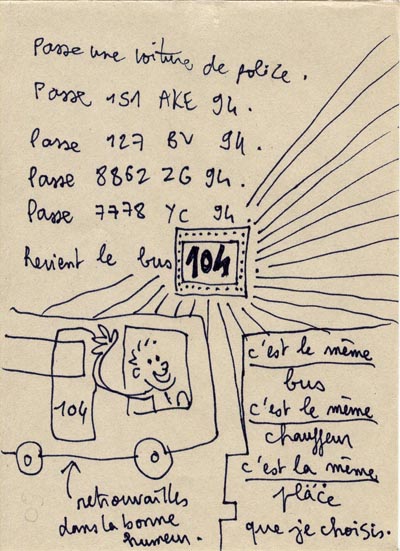 Passe une voiture de police.
Passe 151 AKE 94.
Passe 127 BV 94.
Passe 8862 ZG 94.
Passe 7778 YC 94
Revient le bus 104
104
retrouvailles
dans la bonne
humeur.
c'est le même
bus
c'est le même
chauffeur
c'est la même
place
que je choisis.